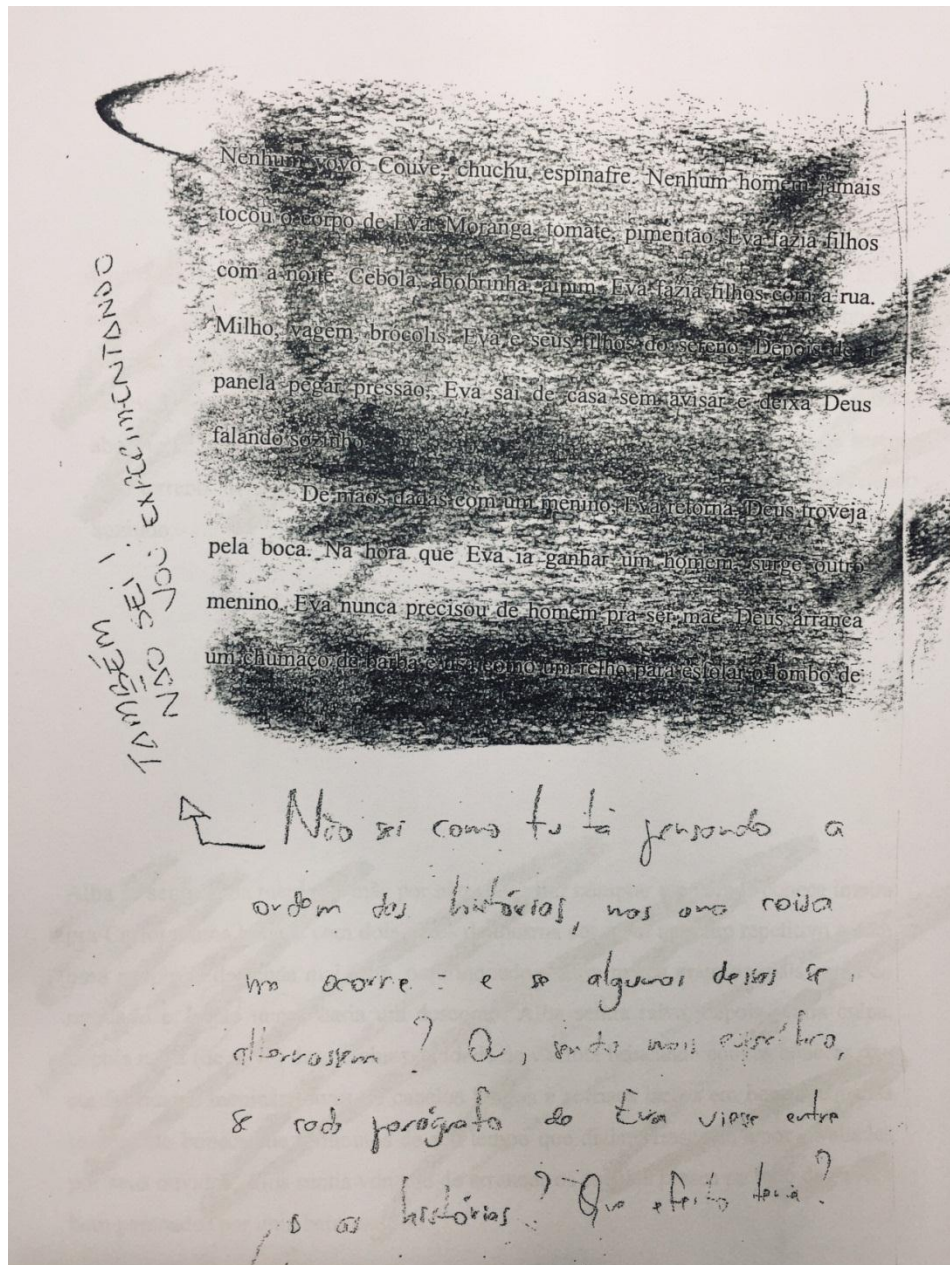 Nenhum vovô. Couve, chuchu, espinafre. Nenhum homem jamais
tocou o corpo de Eva. Moranga, tomate, pimentão. Eva fazia filhos
com a noite. Cebola, abobrinha, aipim. Eva fazia filhos com a rua.
Milho, vagem, brócolis. Eva e seus filhos do sereno. Depois de a
panela pegar pressão, Eva sai de casa sem avisar e deixa Deus
falando sozinho.
De mãos dadas com um menino, Eva retorna. Deus troveja
pela boca. Na hora que Eva ia ganhar um homem, surge outro
menino. Eva nunca precisou de homem pra ser mãe. Deus arranca
um chumaço da barba e usa como um relho para esfolar o lombo de
TAMBÉM
NÃO SEI!
VOU EXPERIMENTANDO
Não sei como tu tá pensando a
ordem das histórias, mas uma coisa
me ocorre: e se algumas dessas se
alternassem? Ou, sendo mais específico,
se cada parágrafo do Eva viesse entre
as histórias? Que efeito teria?